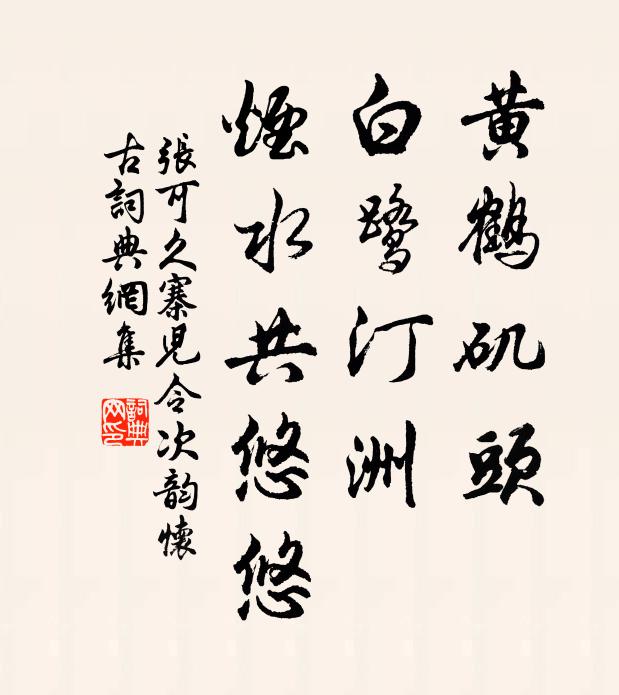 黄鶴矶頭
白鹭汀洲
煙水共悠悠
張可久寨児令次韵懷
古詞典網集
詞典
网印